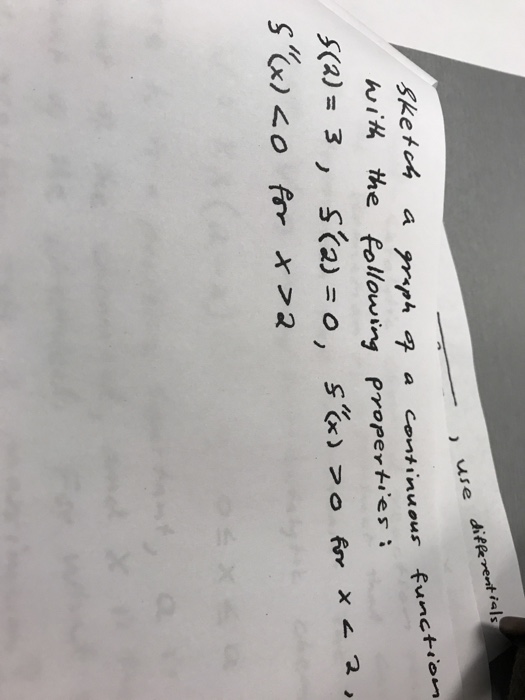 , use differentials
Sketch a graph of a continuous function
with the following properties:
f(2) = 3, f'(2) = 0, f"(x) > 0 for x < 2,
f"(x) < 0 for x > 2